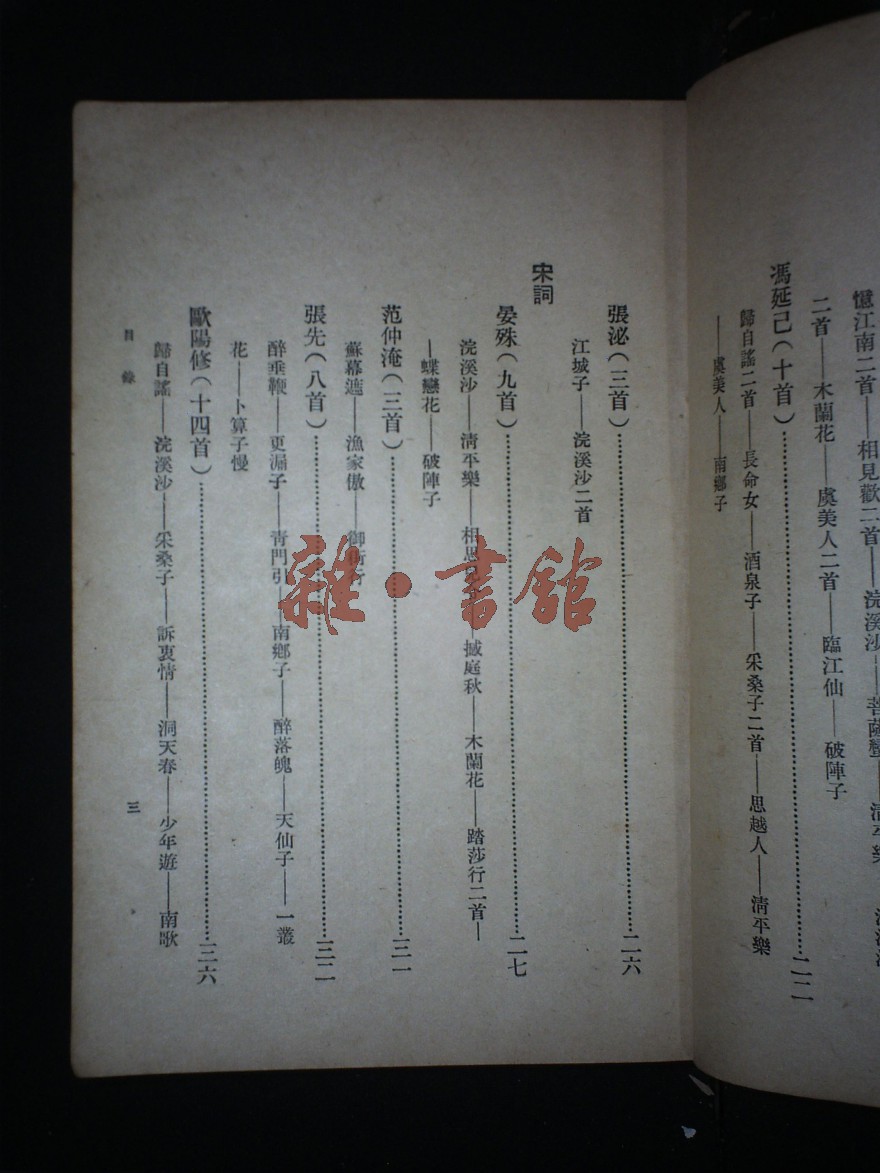 憶江南二首——相見歡二首——浣溪沙——菩薩蠻——清平樂
二首——木蘭花——虞美人二首——臨江仙——破陣子
馮延己(十首)……二二
歸自謠二首——長命女——酒泉子——采桑子二首——思越人——清平樂
——虞美人——南鄉子
張泌(三首)……二六
江城子——浣溪沙二首
宋詞
晏殊(九首)……二七
浣溪沙——清平樂——相思——撼庭秋——木蘭花——踏莎行二首—
—蝶戀花——破陣子
范仲淹(三首)……三一
蘇幕遮——漁家傲——御街行
張先(八首)……三二
醉垂鞭——更漏子——青門引——南鄉子——醉落魄——天仙子——一叢
花——卜算子慢
歐陽修(十四首)……三六
歸自謠——浣溪沙——采桑子——訴衷情——洞天春——少年遊——南歌
目錄
三
雜·書館